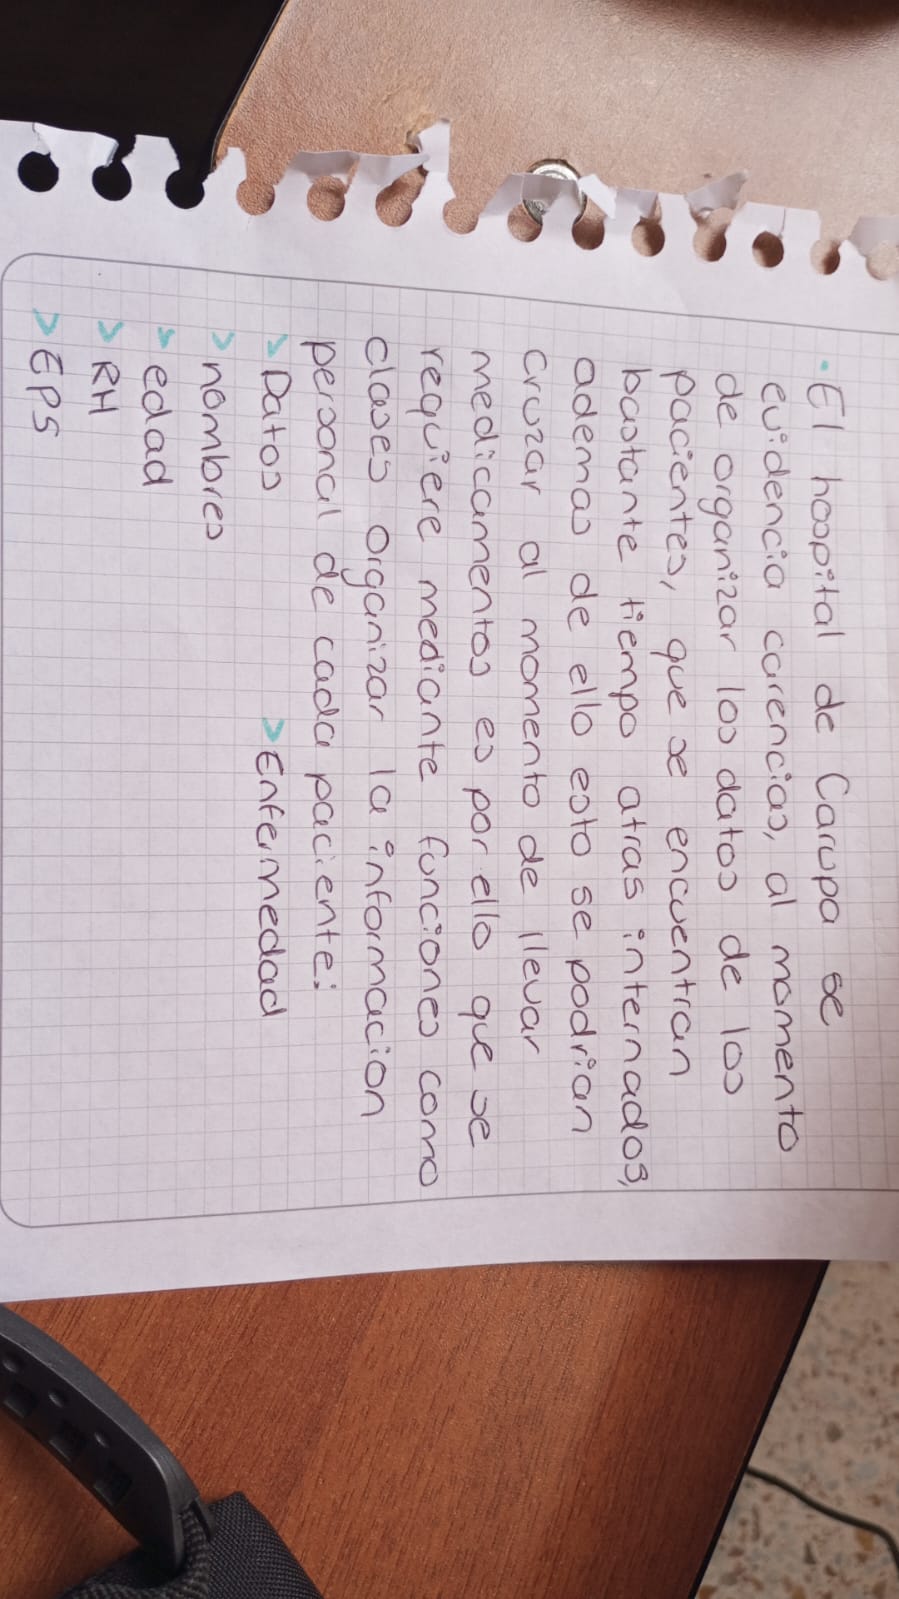 · El hospital de Carupa se
evidencia carencias, al momento
de organizar los datos de los
pacientes, que se encuentran
bastante tiempo atras internados,
ademas de ello esto se podrian
cruzar al momento de llevar
medicamentos es por ello que se
requiere mediante funciones como
clases organizar la informacion
personal de cada paciente:
> Datos > Enfermedad
> nombres
> edad
> RH
> EPS